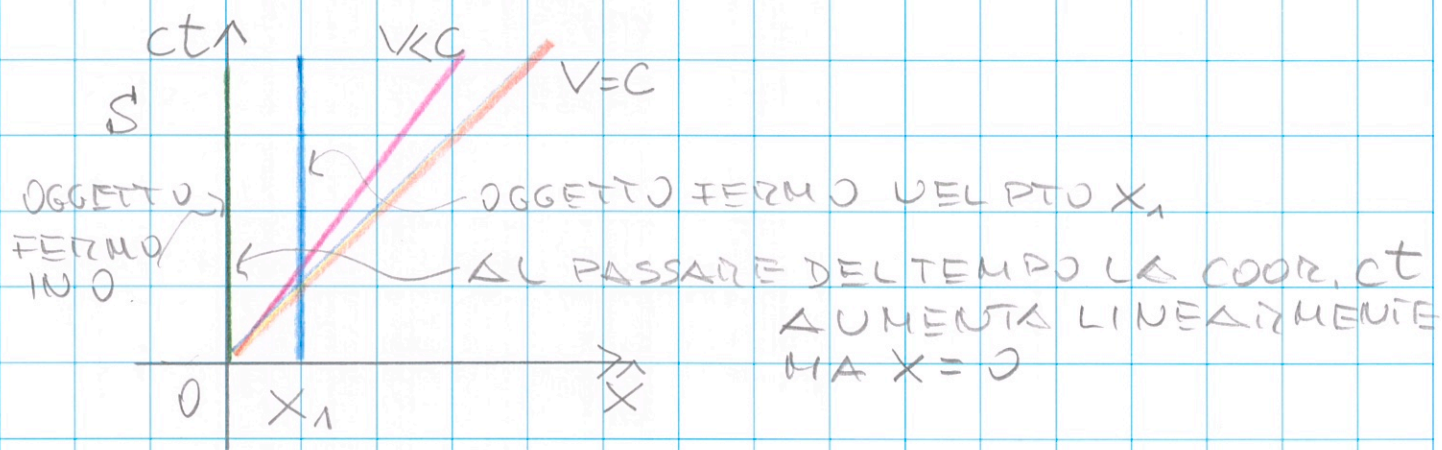 ct
V<C
V=C
S
OGGETTO
FERMO
IN O.
OGGETTO FERMO NEL PTO X₁
AL PASSARE DEL TEMPO LA COOR. ct
AUMENTA LINEARMENTE
MA X = 0
O
X₁
X